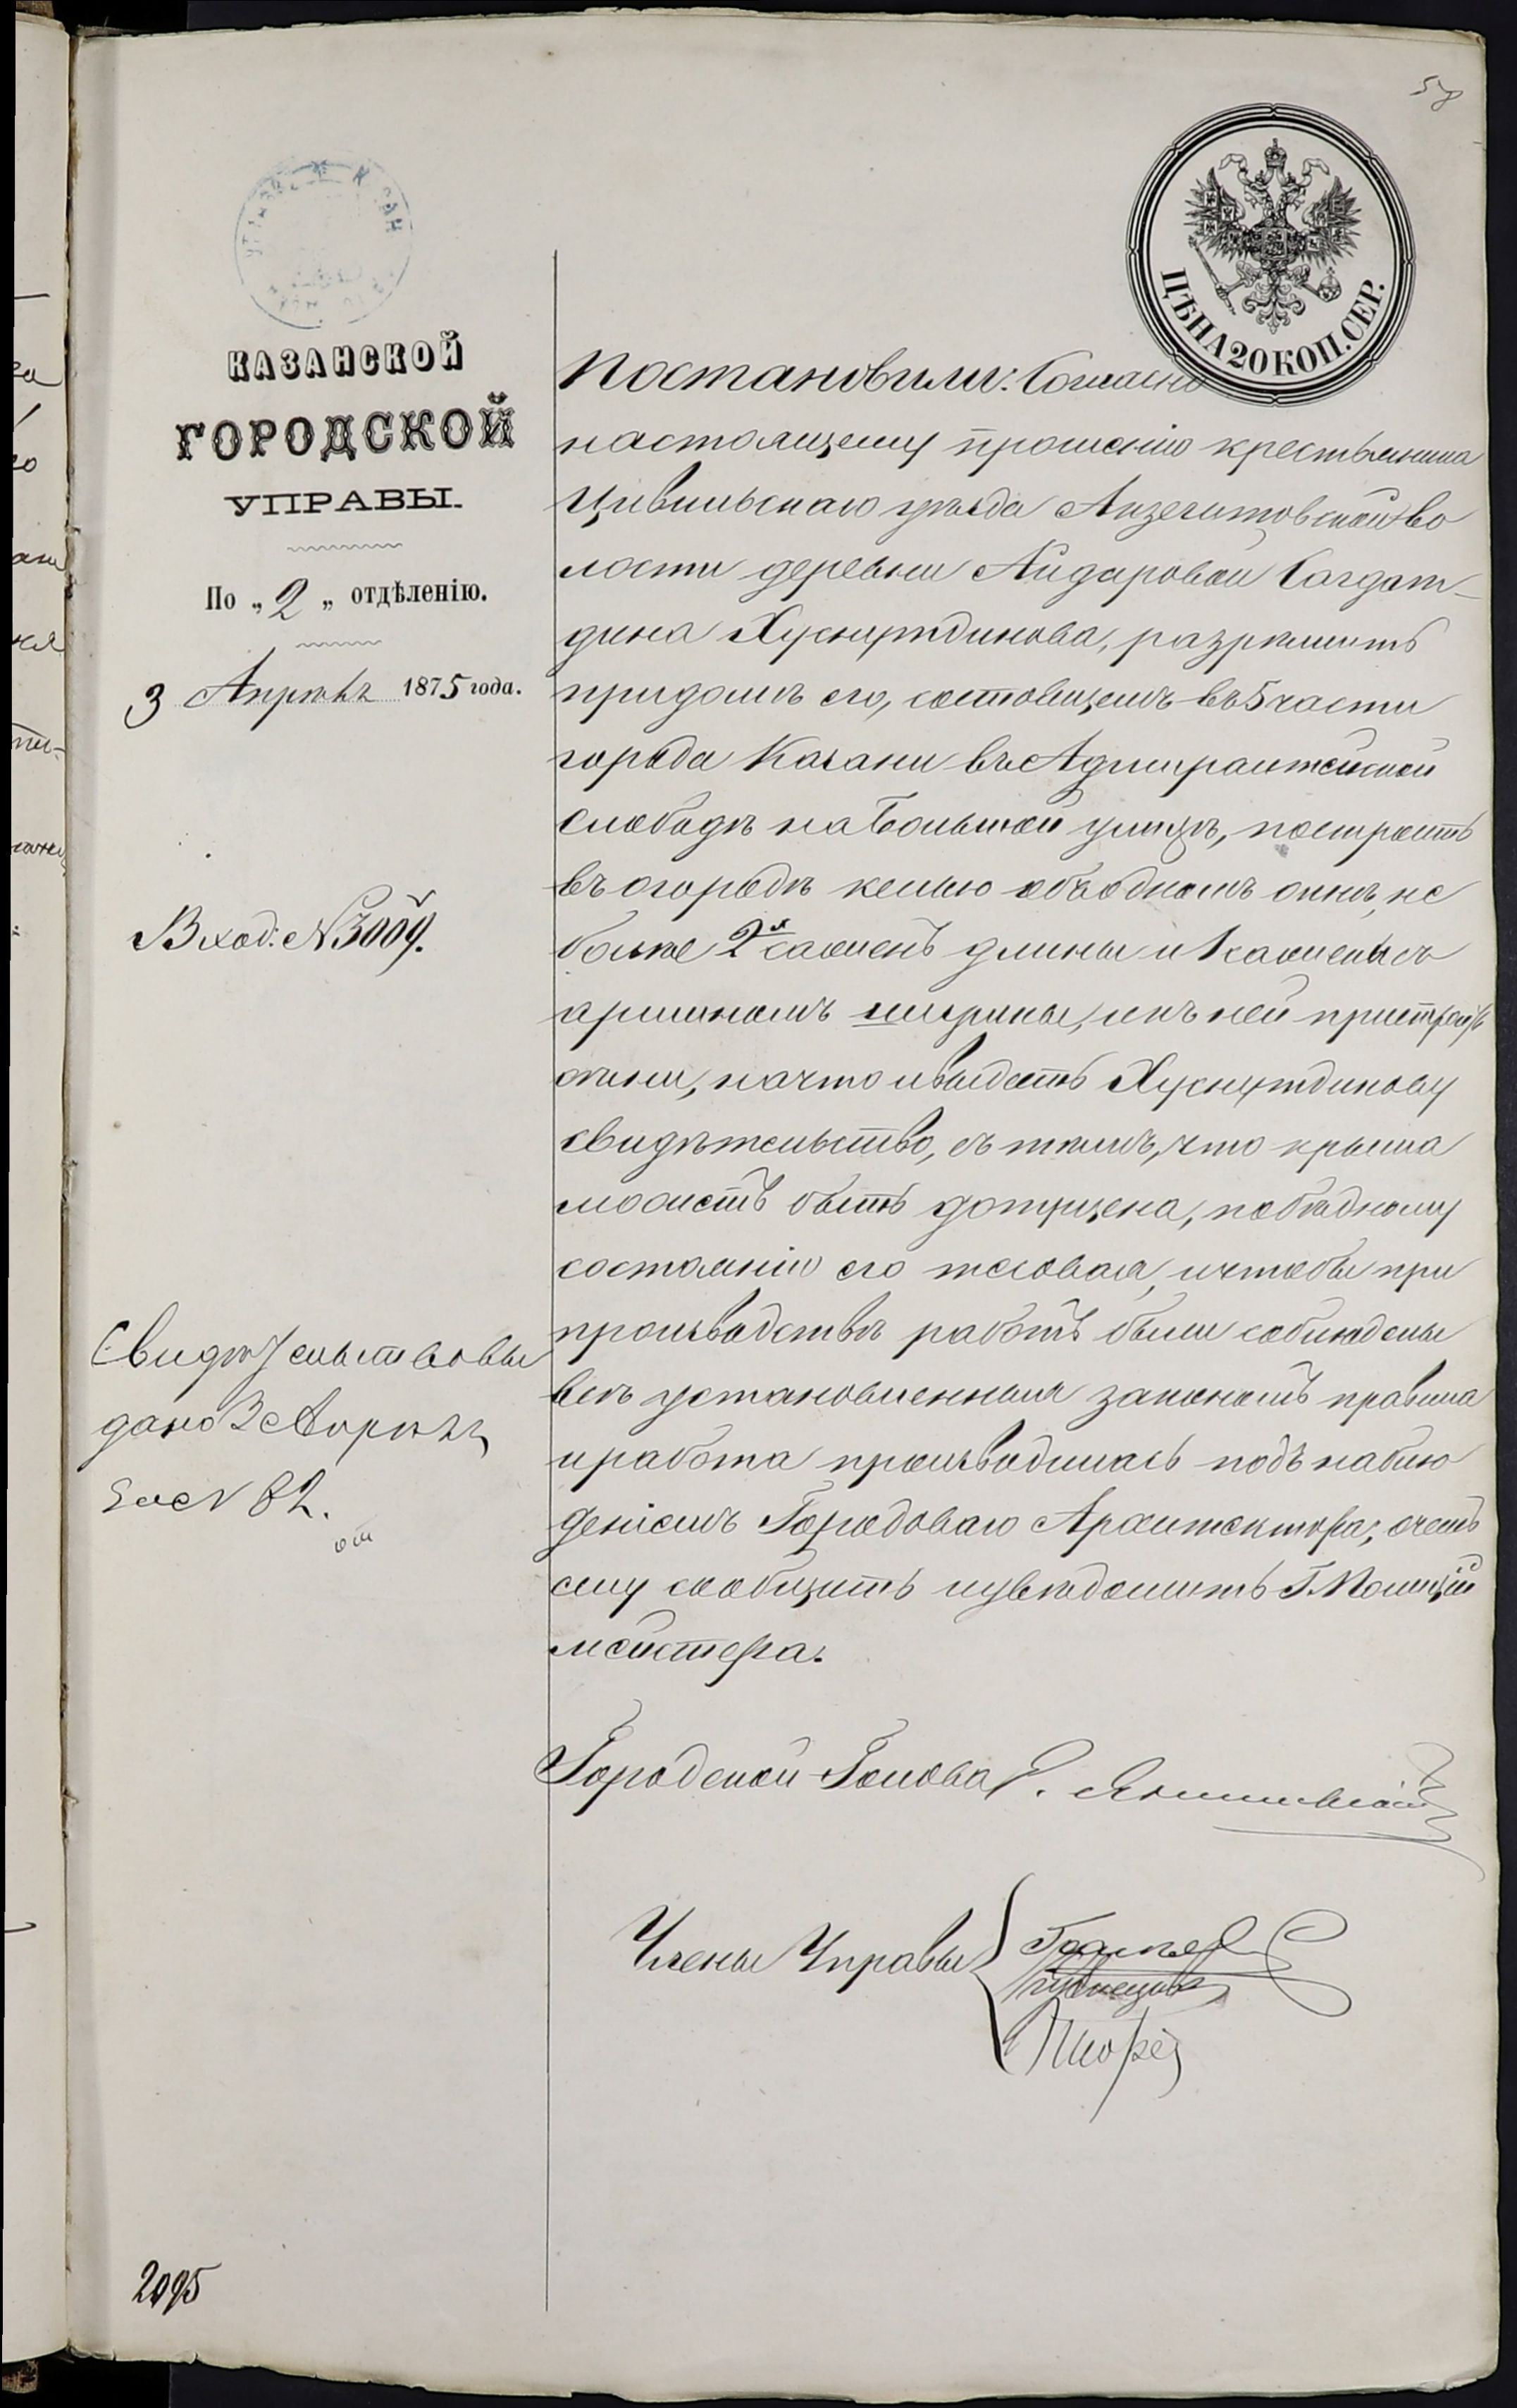 58
ЦѢНА 20 КОП. СЕР.
КАЗАНСКОЙ
ГОРОДСКОЙ
УПРАВЫ.
По „2„ отдѣленію.
3 Апрѣля 1875 года.
Вход: №3009.
Свидѣтельство вы
дано 3 Апрѣля
за № 82.
2095
Постановили: Согласно
настоящему прошенію крестьянина
Цивильскаго уѣзда Анзегитовской во
лости деревни Айдаровой Сагдат-
дина Хуснутдинова, разрѣшить
при домѣ его, состоящемъ въ 5 части
города Казани въ Адмиралтейской
Слободѣ на Большой улицѣ, построить
въ огородѣ келью объ одномъ окнѣ, не
болѣе 2х сажень длины и 1 сажени съ
аршиномъ ширины, и къ ней пристроить
сѣни, на что и выдать Хуснутдинову
свидѣтельство, съ тѣмъ, что крыша
можетъ быть допущена, по бѣдному
состоянію его тесовая, и чтобы при
производствѣ работъ были соблюдены
всѣ установленныя закономъ правила
и работа производилась подъ наблю
деніемъ Городоваго Архитектора; о чемъ
ему сообщить и увѣдомить Г. Полицій
мейстера.
Городской Голова Э. Янишевскій
Члены Управы
Кузнецовъ